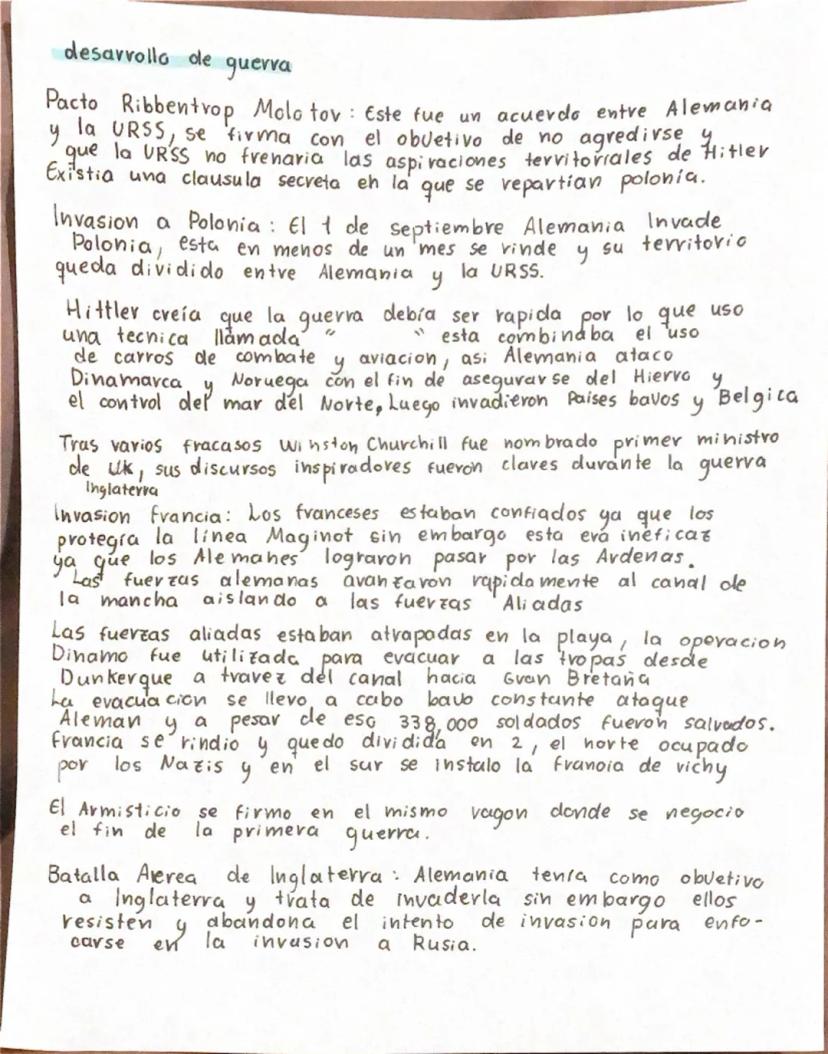 desarrollo de guerra
Pacto Ribbentrop Molotov : Este fue un acuerdo entre Alemania
y la URSS, se firma con el obJetivo de no agredirse y
que la URSS no frenaria las aspiraciones territoriales de Hitler
Existia una clausula secreta en la que se repartían polonia.
Invasion a Polonia : El 1 de septiembre Alemania Invade
Polonia, esta en menos de un mes se rinde y su territorio
queda dividido entre Alemania y la URSS.
Hittler creía que la guerra debía ser rapida por lo que uso
una tecnica llamada " " esta combinaba el uso
de carros de combate y aviacion, asi Alemania ataco
Dinamarca y Noruega con el fin de asegurarse del Hierro y
el control del mar del Norte, Luego invadieron Paises baJos y Belgica
Tras varios fracasos Winston Churchill fue nombrado primer ministro
de UK, sus discursos inspiradores fueron claves durante la guerra
Inglaterra
Invasion Francia: Los franceses estaban confiados ya que los
protegía la línea Maginot sin embargo esta era ineficaz
ya que los Alemanes lograron pasar por las Ardenas.
Las fuerzas alemanas avanzaron rapidamente al canal de
la mancha aislando a las fuerzas Aliadas
Las fuerzas aliadas estaban atrapadas en la playa, la operacion
Dinamo fue utilizada para evacuar a las tropas desde
Dunkerque a travez del canal hacia Gran Bretaña
La evacuacion se llevo a cabo baJo constante ataque
Aleman y a pesar de eso 338,000 soldados fueron salvados.
Francia se rindio y quedo dividida en 2, el norte ocupado
por los Nazis y en el sur se instalo la Francia de vichy
El Armisticio se firmo en el mismo vagon donde se negocio
el fin de la primera guerra.
Batalla Aerea de Inglaterra : Alemania tenía como obJetivo
a Inglaterra y trata de invaderla sin embargo ellos
resisten y abandona el intento de invasion para enfo-
carse en la invasion a Rusia.